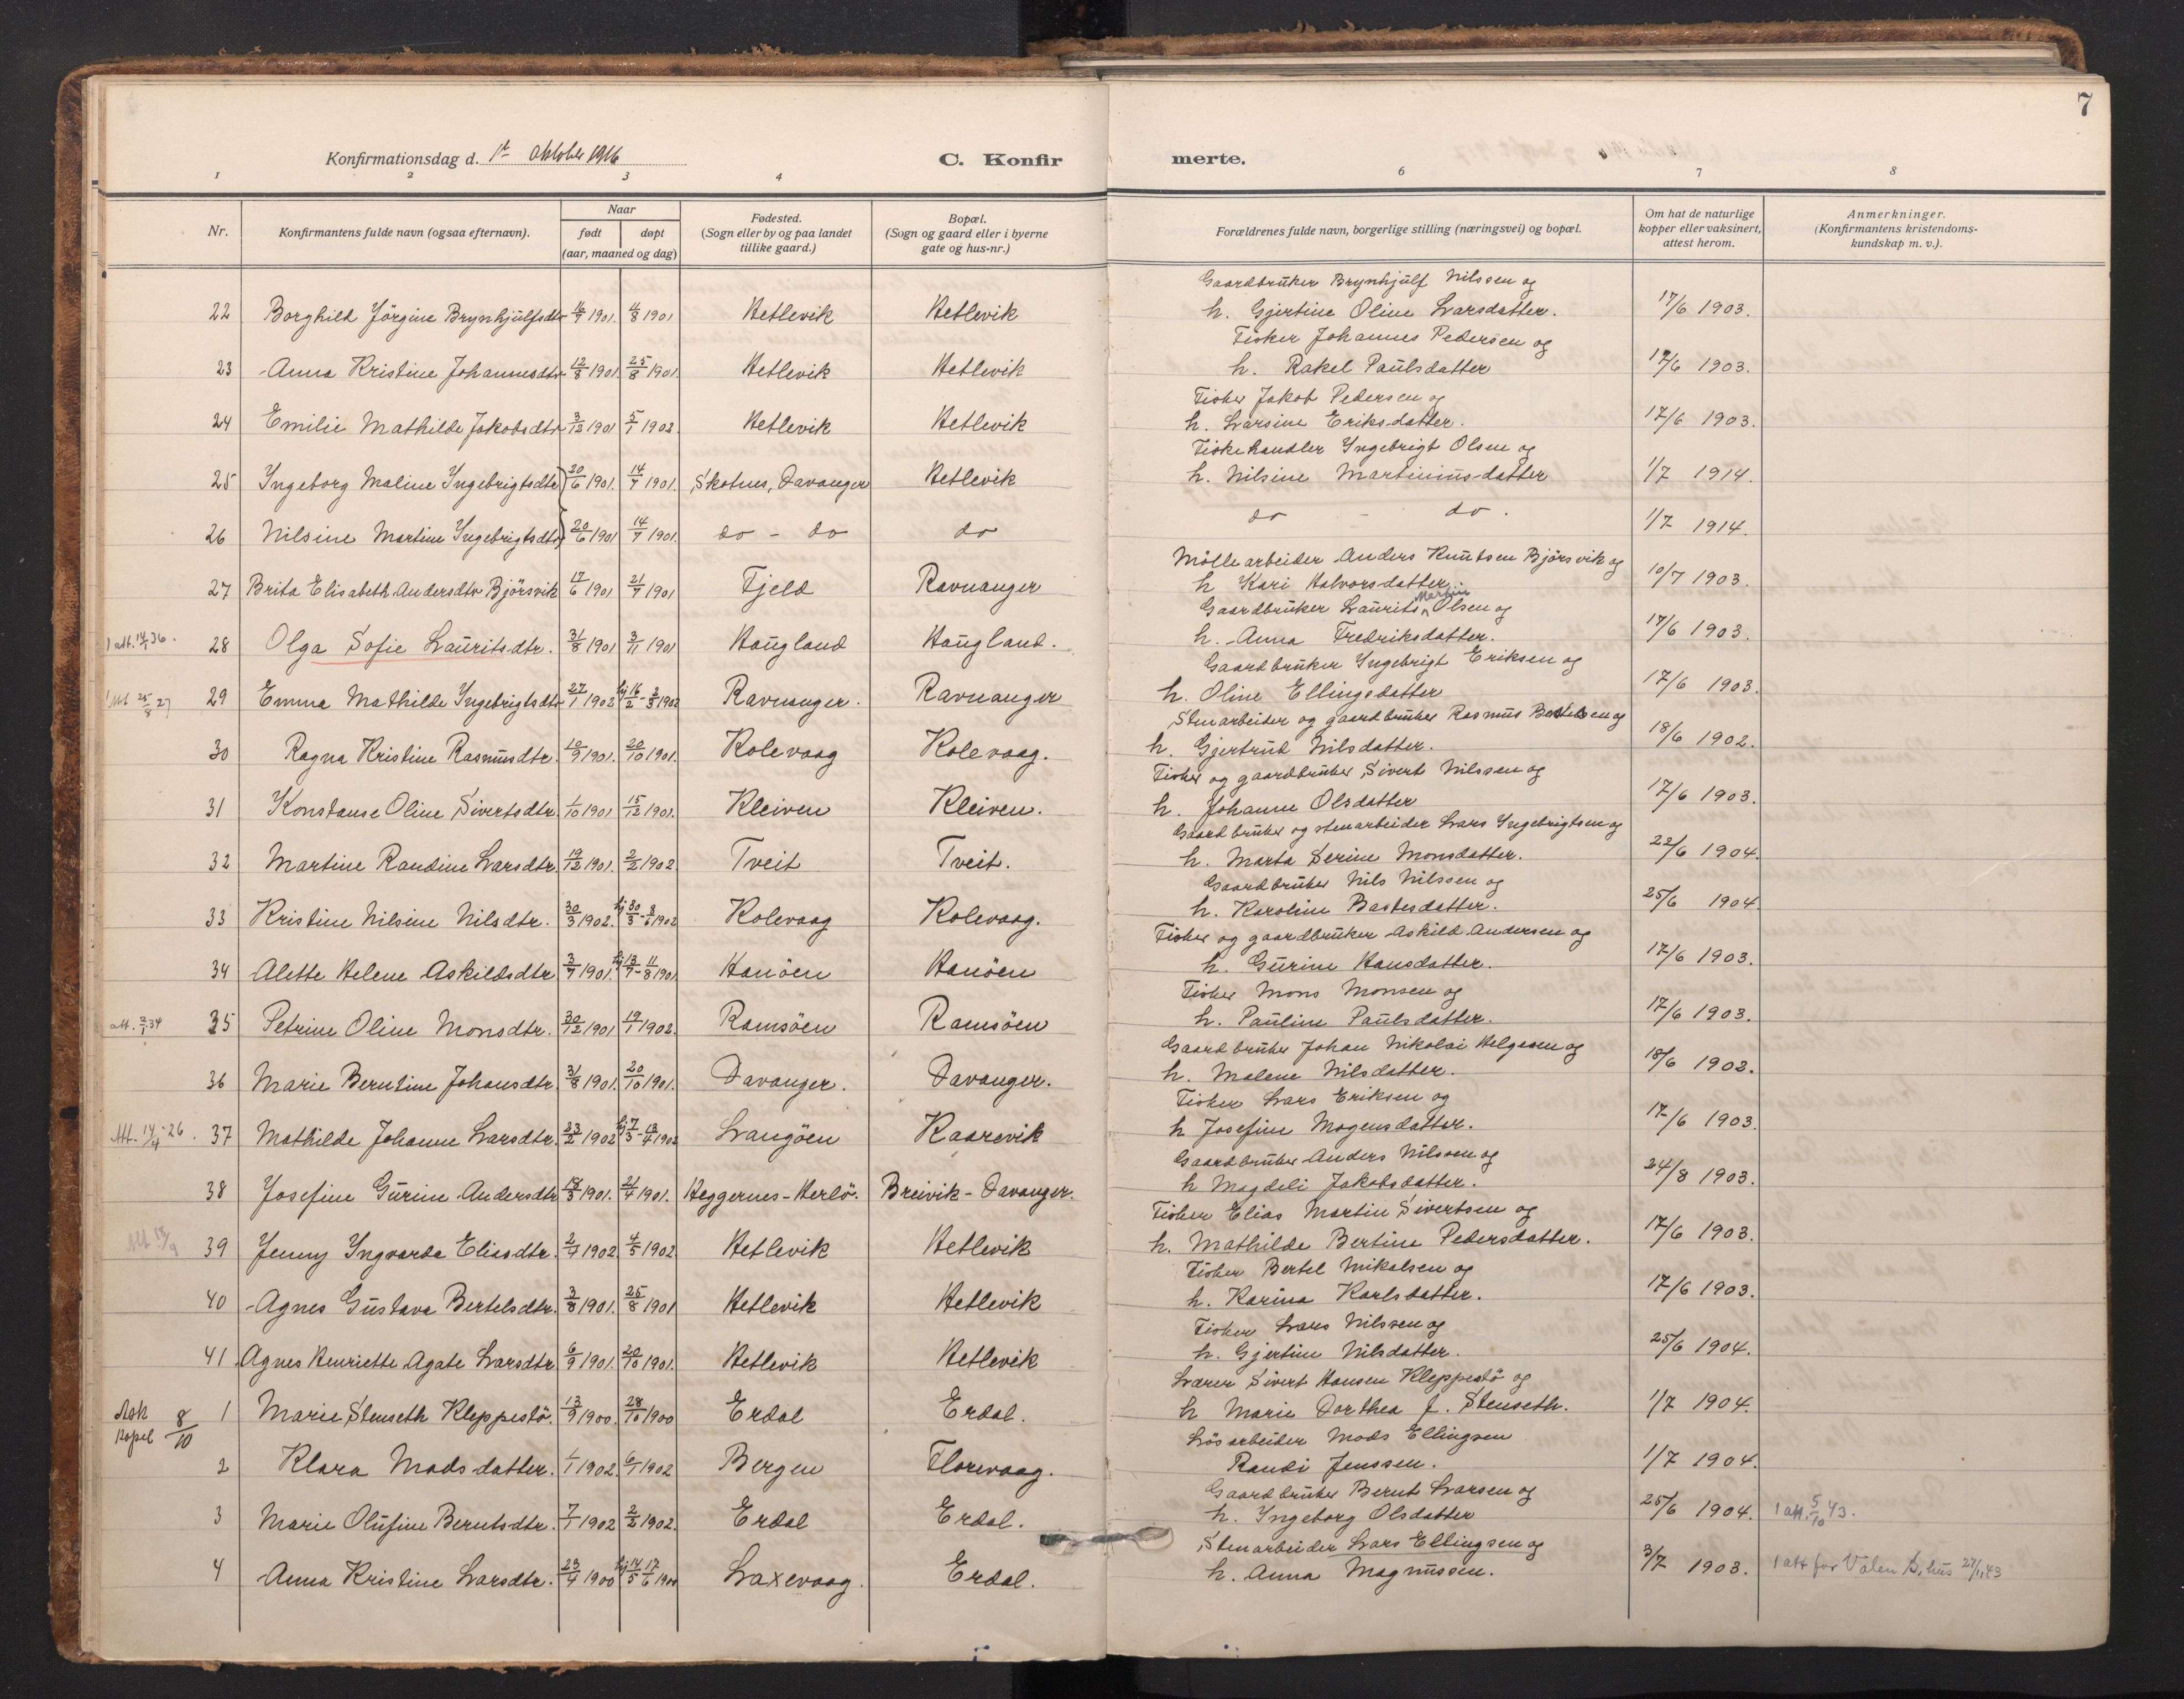 7
Konfirmationsdag d. 1ste oktober 1916
C. Konfirmerte.
1 2 3 4 6 7 8
Nr. | Konfirmantens fulde navn (ogsaa efternavn). | Naar født døpt (aar, maaned og dag) | Fødested. (Sogn eller by og paa landet tillike gaard.) | Bopæl. (Sogn og gaard eller i byerne gate og hus-nr.) | Forældrenes fulde navn, borgerlige stilling (næringsvei) og bopæl. | Om hat de naturlige kopper eller vaksinert, attest herom. | Anmerkninger. (Konfirmantens kristendomskundskap m. v.).
22 Borghild Jörgine Brynhjülfsdtr 16/7 1901. 4/8 1901 Hetlevik Hetlevik Gaardbrüker Brynhjülf Nilssen og h. Gjertine Oline Larsdatter. 17/6 1903.
23 Anna Kristine Johannesdtr 12/8 1901. 25/8 1901. Hetlevik Hetlevik Fisker Johannes Pedersen og h. Rakel Paülsdatter 17/6 1903.
24 Emilie Mathilde Jakobsdtr 3/12 1901 5/1 1902. Hetlevik Hetlevik Fisker Jakob Pedersen og h. Larsine Eriksdatter. 17/6 1903.
25 Ingeborg Maline Ingebrigtsdtr 20/6 1901. 14/7 1901. Skotnes, Davanger Hetlevik Fiskehandler Ingebrigt Olsen og h. Nilsine Martiniüsdatter 1/7 1914.
26 Nilsine Martine Ingebrigtsdtr 20/6 1901 14/7 1901. do - do do do - do. 1/7 1914.
27 Brita Elisabeth Andersdtr Björsvik 17/6 1901 21/7 1901 Fjeld Ravnanger Möllearbeider Anders Knütsen Björsvik og h Kari Halvorsdatter. 10/7 1903.
1 att. 14/1 36. 28 Olga Sofie Laüritsdtr. 31/8 1901 3/11 1901 Haügland Haügland. Gaardbrüker Laürits Martin Olsen og h. Anna Fredriksdatter. 17/6 1903.
1 Att 25/8 27 29 Emma Mathilde Ingebrigtsdtr 27/1 1902 hj 16/2 - 2/3 1902 Ravnanger. Ravnanger Gaardbrüker Ingebrigt Eriksen og h. Oline Ellingsdatter 17/6 1903.
30 Ragna Kristine Rasmüsdtr. 10/9 1901. 20/10 1901. Kolevaag Kolevaag. Stenarbeider og gaardbrüker Rasmüs Bertelsen og h. Gjertrüd Nilsdatter. 18/6 1902.
31 Konstanse Oline Sivertsdtr. 1/10 1901 15/12 1901. Kleiven Kleiven. Fisker og gaardbrüker Sivert Nilssen og h. Johanne Olsdatter 17/6 1903.
32 Martine Randine Larsdtr. 19/12 1901. 2/2 1902 Tveit Tveit. Gaardbrüker og stenarbeider Lars Ingebrigtsen og h. Marta Serine Monsdatter. 22/6 1904.
33 Kristine Nilsine Nilsdtr. 30/3 1902. hj 30/3 - 8/6 1902 Kolevaag Kolevaag. Gaardbrüker Nils Nilssen og h. Karoline Bastesdatter. 25/6 1904.
34 Alette Helene Askildsdtr 3/7 1901. hj 13/7 - 11/8 1901. Hanöen Hanöen Fisker og gaardbrüker Askild Andersen og h. Gürine Hansdatter. 17/6 1903.
att. 2/1 34 35 Petrine Oline Monsdtr. 30/12 1901 19/1 1902. Ramsöen Ramsöen Fisker Mons Monsen og h. Paüline Paülsdatter. 17/6 1903.
36 Marie Berntine Johansdtr. 31/8 1901. 20/10 1901. Davanger. Davanger. Gaardbrüker Johan Nikolai Helgesen og h. Malene Nilsdatter. 18/6 1902.
Att. 14/4 - 26. 37 Mathilde Johanne Larsdtr. 23/2 1902 hj 7/3 - 13/4 1902 Langöen Kaarevik Fisker Lars Eriksen og h Josefine Mogensdatter. 17/6 1903.
38 Josefine Gürine Andersdtr 18/3 1901. 21/4 1901. Heggernes - Herlö. Breivik - Davanger. Gaardbrüker Anders Nilssen og h Magdeli Jakobsdatter. 24/8 1903.
Att 39 Jenny Ingvarda Eliasdtr. 2/4 1902 4/5 1902. Hetlevik Hetlevik Fisker Elias Martin Sivertsen og h. Mathilde Bertine Pedersdatter. 17/6 1903.
40 Agnes Güstava Bertelsdtr. 3/8 1901. 25/8 1901 Hetlevik Hetlevik Fisker Bertel Mikalsen og h. Karina Karlsdatter. 17/6 1903.
41 Agnes Henriette Agate Larsdtr 6/9 1901. 20/10 1901. Hetlevik Hetlevik Fisker Lars Nilssen og h. Gjertine Nilsdatter. 25/6 1904.
Ask kapel 8/10 1 Marie Stenseth Kleppestö. 13/9 1900. 28/10 1900 Erdal Erdal. Lærer Sivert Hansen Kleppestö og h Marie Dorthea f. Stenseth. 1/7 1904.
2 Klara Madsdatter. 1/1 1902. 6/1 1902 Bergen Florevaag. Lösarbeider Mads Ellingsen Randi Jenssen. 1/7 1904.
3 Marie Olüfine Berntsdtr. 7/1 1902 2/2 1902. Erdal Erdal. Gaardbrüker Bernt Larsen og h. Ingeborg Olsdatter 25/6 1904. 1 att. 5/10 43.
4 Anna Kristine Larsdtr. 23/4 1900 hj 14/5 17/6 1900 Laxevaag. Erdal. Stenarbeider Lars Ellingsen og h. Anna Magnüssen. 3/7 1903. 1 att for Valen S.hus 27/1 43